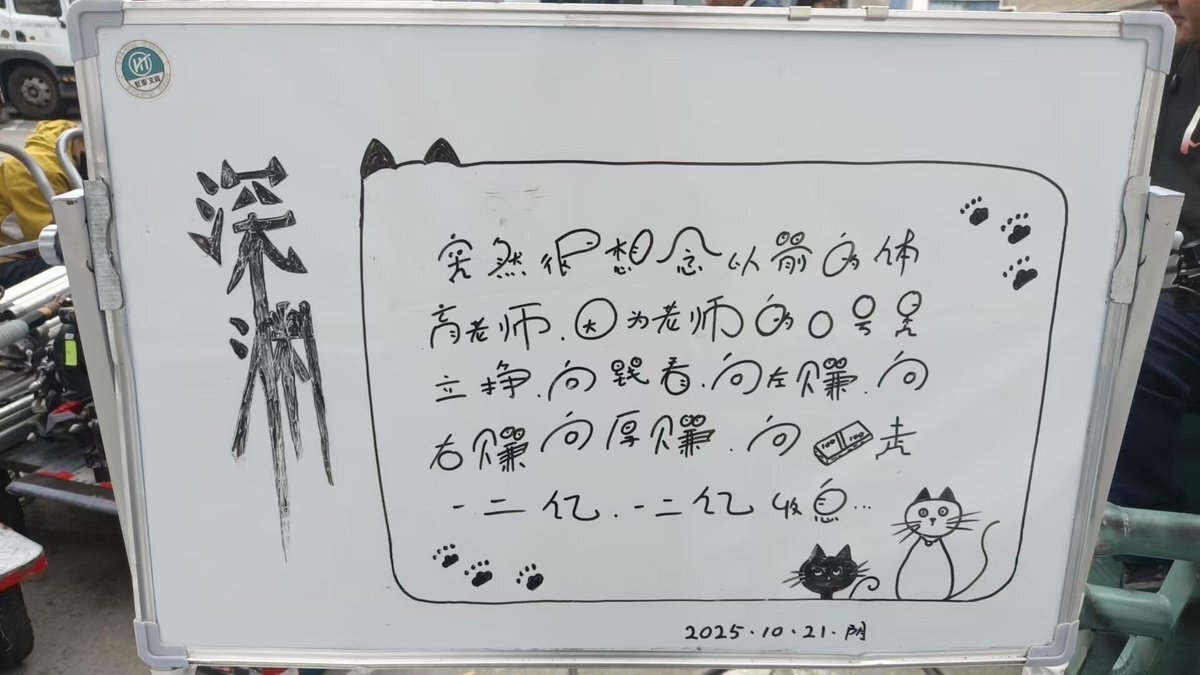 深渊
突然很想念以前的体
育老师.因为老师的口号是
立挣.向钱看.向左赚.向
右赚向厚赚.向100 100走
一二亿.一二亿收息...
2025.10.21.阴